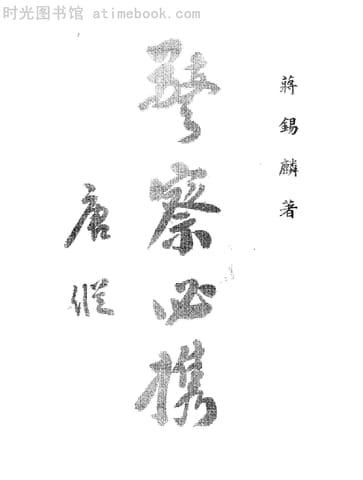 时光图书馆 - atimebook.com
蔣錫麟著
警察必携
唐縱